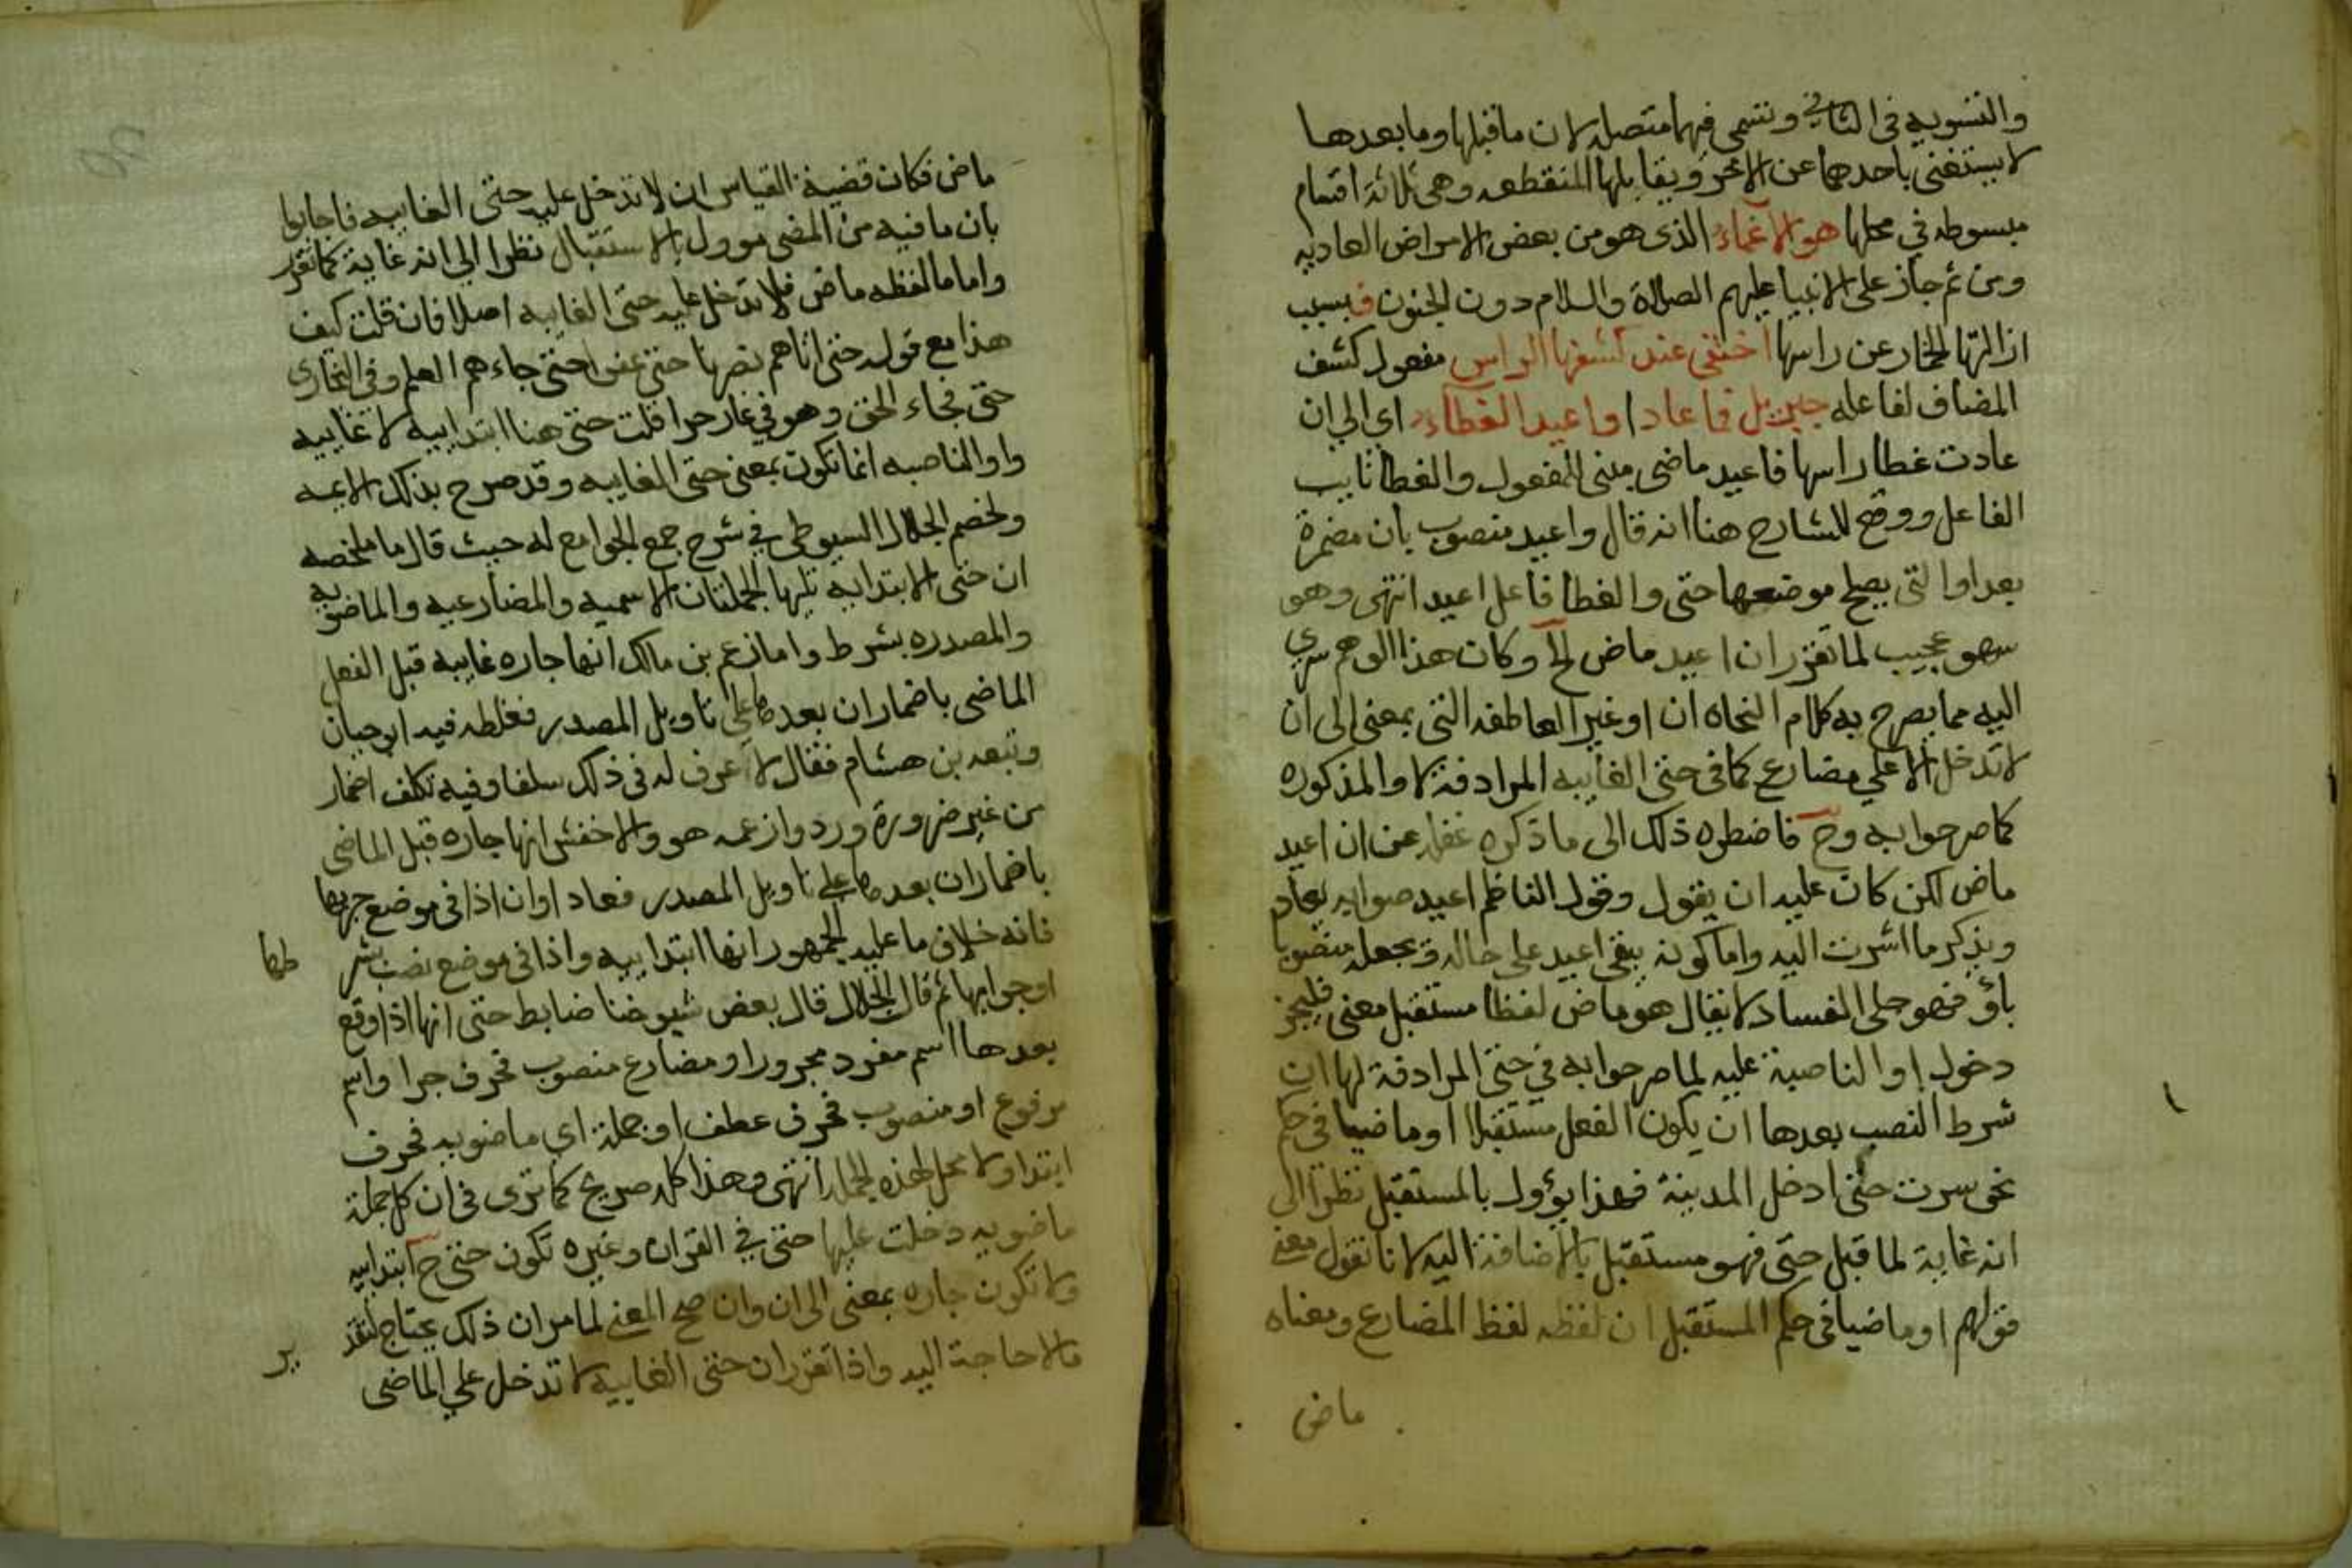 والتسويه في الثاني وتسمى فيهما متصله لان ما قبلها وما بعدها
لا يستغنى باحدهما عن الاخر ويقابلها المنقطعه وهي ثلاثة اقسام
مبسوطه في محلها هو الاغماء الذى هو من بعض الامراض العاديه
ومن ثم جاز على الانبيا عليهم الصلاة والسلام دون الجنون فبسبب
ازالتها الخمار عن راسها اختفى عند كشفها الراس مفعول كشف
المضاف لفاعله جبريل فما عاد او اعيد الغطاء اي الي ان
عادت غطا راسها فاعيد ماضي مبنى للمفعول والغطا نايب
الفاعل ووقع للشارح هنا انه قال واعيد منصوب بان مضمرة
بعد او التى يصلح موضعها حتى والغطا فاعل اعيد انتهى وهو
سهو عجيب لما تقرر ان اعيد ماض الخ وكان هذا الوهم سرى
اليه مما يصرح به كلام النحاه ان او غير العاطفه التى بمعنى الى ان
لا تدخل الا على مضارع كما فى حتى الغاييه المرادفة لاو المذكوره
كما صرحوا به وح فاضطره ذلك الى ما ذكره غفله عن ان اعيد
ماض لكن كان عليه ان يقول وقول الناظم اعيد صوابه يعاد
ويذكر ما اشرت اليه واما كونه يبقى اعيد على حاله ويجعله منصوبا
باو فهو جلى الفساد لا يقال هو ماض لفظا مستقبل معنى فليجز
دخول او الناصبة عليه لما صرحوا به في حتى المرادفة لها ان
شرط النصب بعدها ان يكون الفعل مستقبلا او ماضيا فى حكم
نحو سرت حتى ادخل المدينة فهذا يؤول بالمستقبل نظرا الى
انه غاية لما قبل حتى فهو مستقبل بالاضافة اليه لانا نقول معنى
قولهم او ماضيا فى حكم المستقبل ان لفظه لفظ المضارع ومعناه
ماض
ماض فكان قضية القياس ان لا تدخل عليه حتى الغاييه فاجابوا
بان ما فيه من المضى موول بالاستقبال نظرا الي انه غاية كما تقرر
واما ما لفظه ماض فلا تدخل عليه حتى الغاييه اصلا فان قلت كيف
هذا مع قوله حتى اتاهم نصرنا حتى عفوا حتى جاءهم العلم وفى البخارى
حتى فجاء الحق وهو في غار حرا قلت حتى هنا ابتداييه لا غاييه
واو الناصبه انما تكون بمعنى حتى الغاييه وقد صرح بذلك الايمه
ولخصه الجلال السيوطى في شرح جمع الجوامع له حيث قال ما ملخصه
ان حتى الابتدايه تليها الجملتان الاسميه والمضارعيه والماضويه
والمصدره بشرط واما زعم بن مالك انها جاره غاييه قبل الفعل
الماضى باضمار ان بعدها على تاويل المصدر فغلطه فيه ابو حيان
وتبعه بن هشام فقال لا اعرف له فى ذلك سلفا وفيه تكلف اضمار
من غير ضرورة وردوا زعمه هو والاخفش انها جاره قبل الماضى
باضمار ان بعدها على تاويل المصدر فعاد او ان اذا فى موضع جر بها
فانه خلاف ما عليه الجمهور انها ابتداييه واذا فى موضع نصب بشرطها
او جوابها ثم قال الجلال قال بعض شيوخنا ضابط حتى انها اذا وقع
بعدها اسم مفرد مجرور او مضارع منصوب فحرف جر او اسم
مرفوع او منصوب فحرف عطف او جملة اي ماضويه فحرف
ابتدا ولا محل لهذه الجمله انتهى وهذا كله صريح كما ترى فى ان كل جملة
ماضويه دخلت عليها حتى في القران وغيره تكون حتى ح ابتداييه
ولا تكون جاره بمعنى الى ان وان صح المعنى لما مر ان ذلك يحتاج لتقدير
مالا حاجة اليه واذا تقرر ان حتى الغاييه لا تدخل علي الماضى